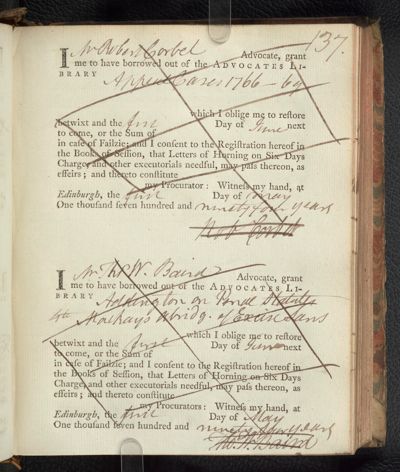 137.
I Mr Robert Corbet Advocate, grant
me to have borrowed out of the ADVOCATES LI-
BRARY Appeal Cases 1766-69
which I oblige me to reſtore
betwixt and the first Day of June next
to come, or the Sum of
in caſe of Failzie; and I conſent to the Regiſtration hereof in
the Books of Seſſion, that Letters of Horning on Six Days
Charge, and other executorials needful, may paſs thereon, as
effeirs; and thereto conſtitute
my Procurator: Witneſs my hand, at
Edinburgh, the first Day of May
One thouſand ſeven hundred and ninety four years
Rob Corbet
I Mr W. Baird Advocate, grant
me to have borrowed out of the ADVOCATES LI-
BRARY Addington on Penal Statutes
4to MacKay's Abridg. of
which I oblige me to reſtore
betwixt and the first Day of June next
to come, or the Sum of
in caſe of Failzie; and I conſent to the Regiſtration hereof in
the Books of Seſſion, that Letters of Horning on Six Days
Charge, and other executorials needful, may paſs thereon, as
effeirs; and thereto conſtitute
my Procurators: Witneſs my hand, at
Edinburgh, the first Day of May
One thouſand ſeven hundred and ninety four years
W. Baird